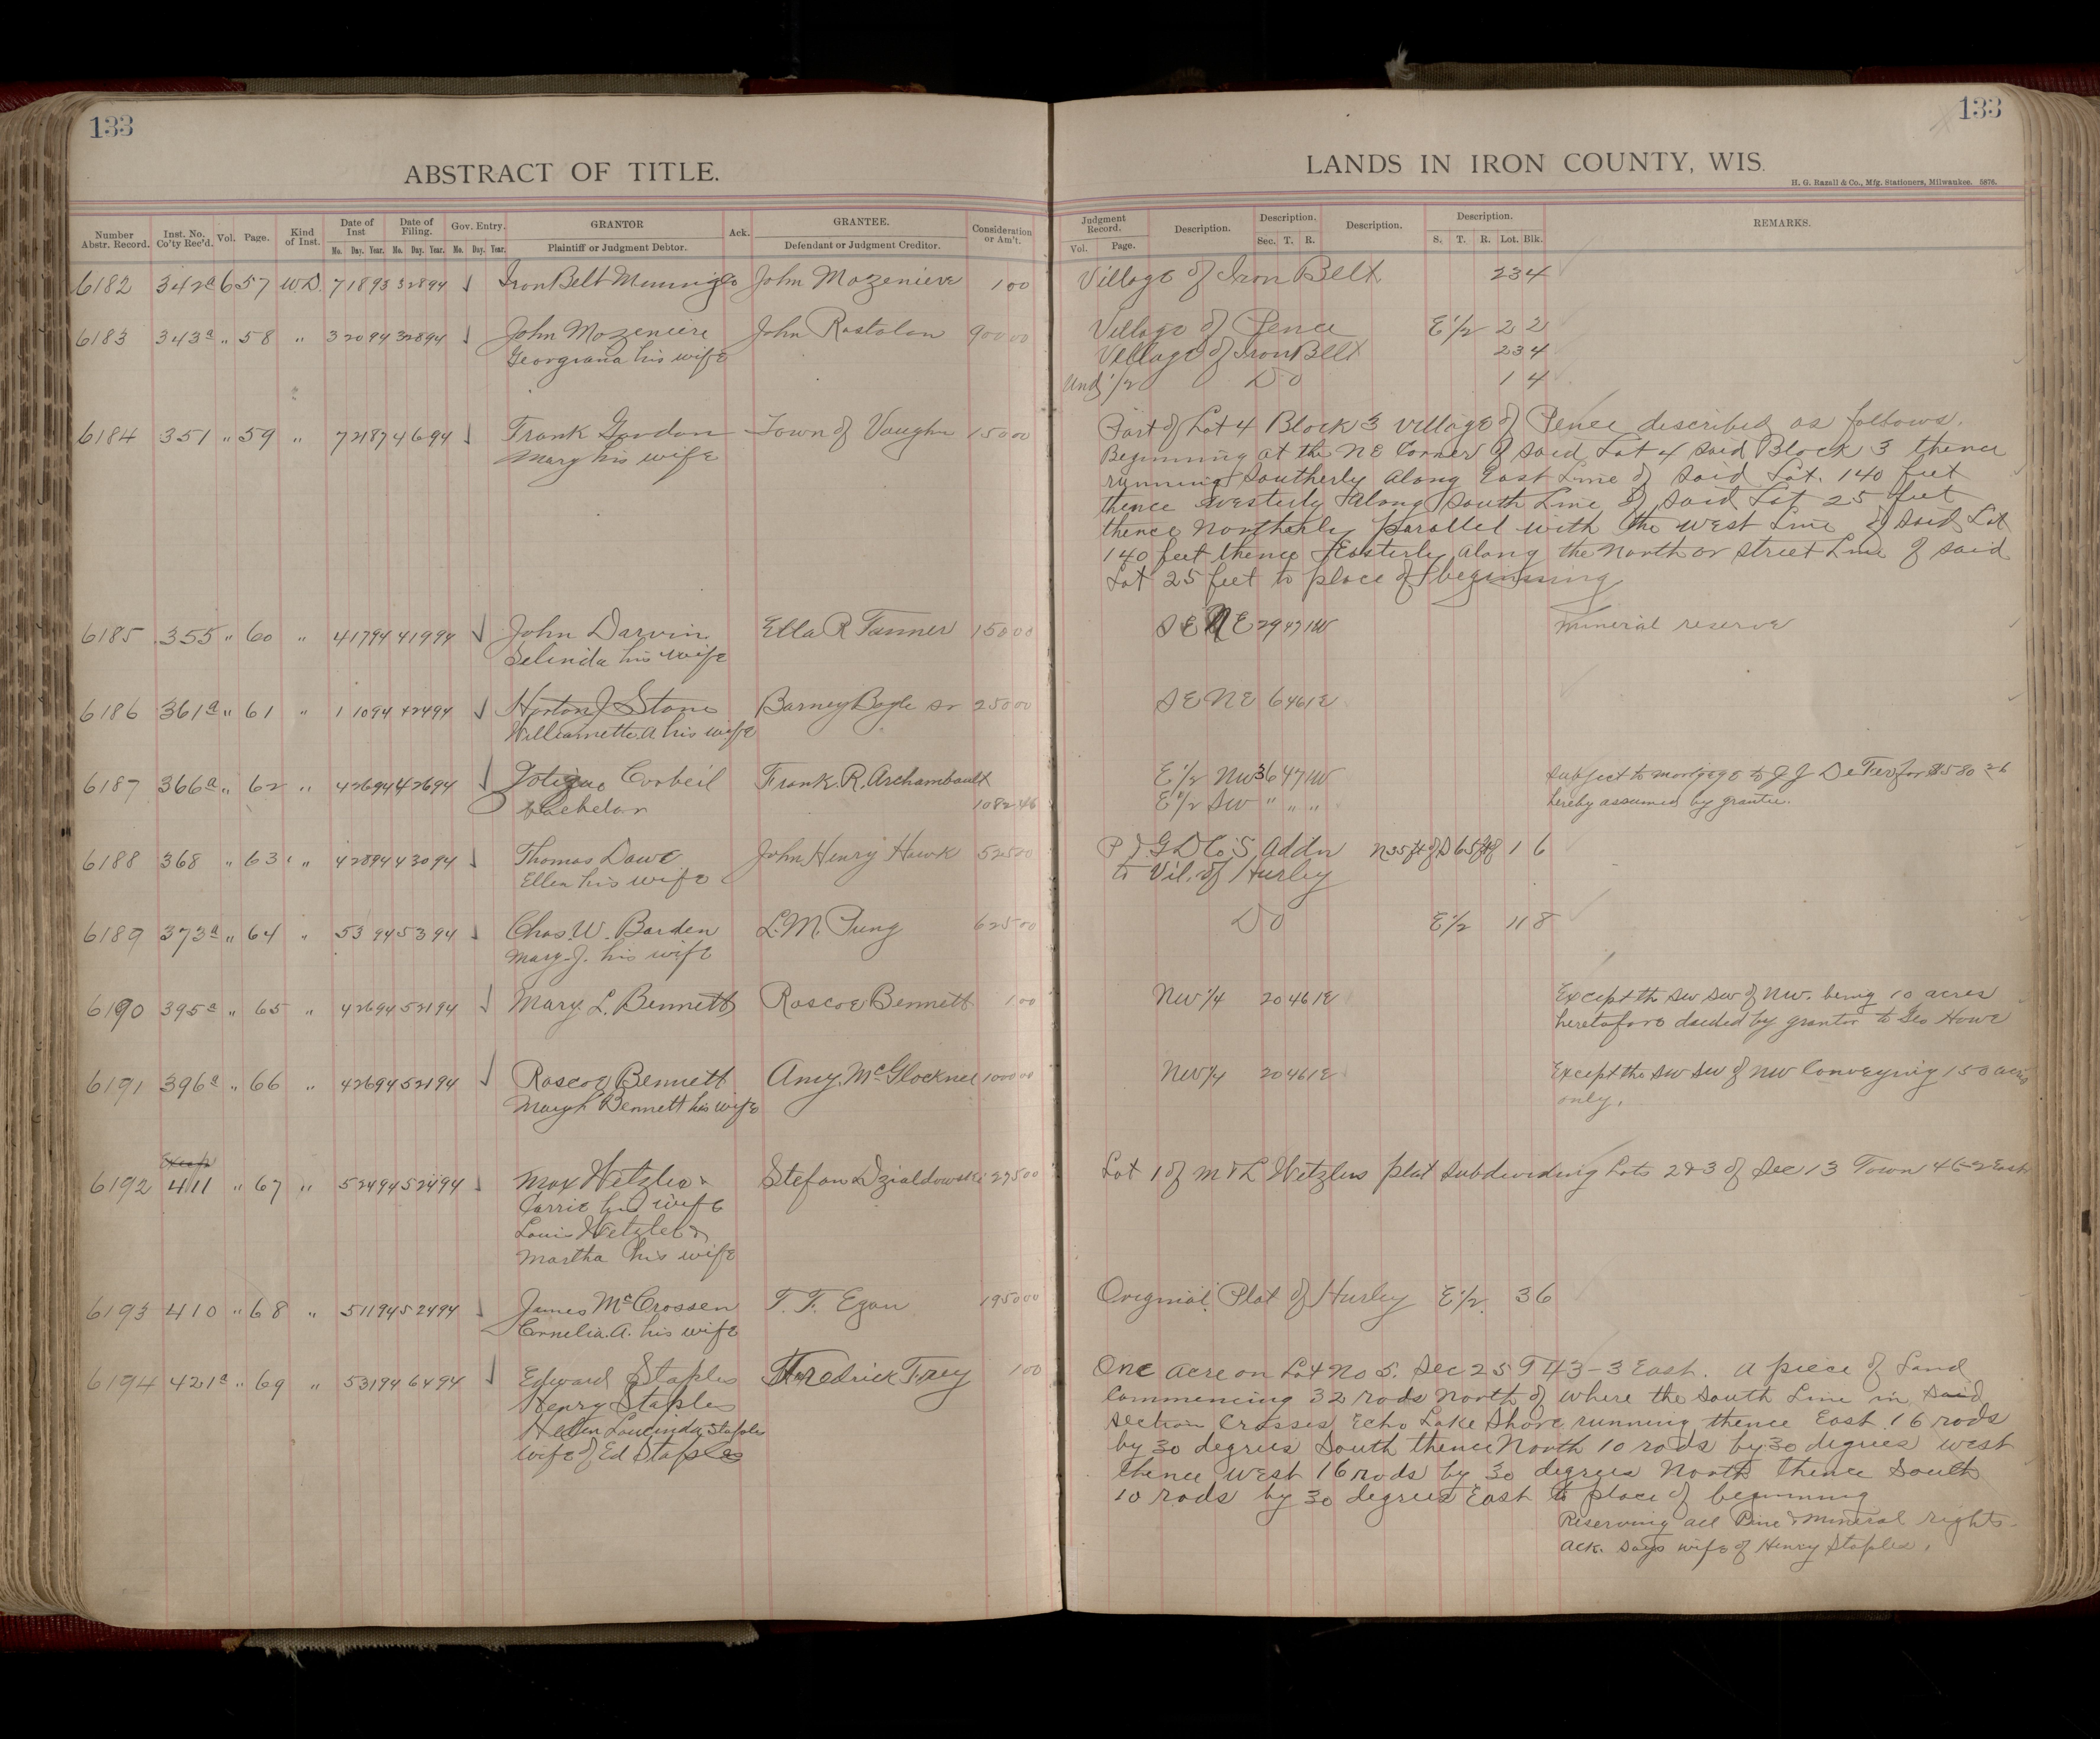 133
133
ABSTRACT OF TITLE.
LANDS IN IRON COUNTY, WIS.
H. G. Razall & Co., Mfg. Stationers, Milwaukee. 5876.
Number Abstr. Record. Inst. No. Co'ty Rec'd. Vol. Page. Kind of Inst. Date of Inst Mo. Day. Year. Date of Filing. Mo. Day. Year. Gov. Entry. Mo. Day. Year. GRANTOR Plaintiff or Judgment Debtor. Ack. GRANTEE. Defendant or Judgment Creditor. Consideration or Am't.
Judgment Record. Vol. Page. Description. Description. Sec. T. R. Description. Description. S. T. R. Lot. Blk. REMARKS.
6182 342a 6 57 W.D. 7 18 93 3 28 94 Iron Belt Mining Co John Mozeniere 1 00 Village of Iron Belt 23 4
6183 343a " 58 " 3 20 94 3 28 94 John Mozeniere John Rostolan 900 00 Village of Pence E 1/2 2 2
Georgiana his wife Village of Iron Belt 23 4
Und 1/2 Do 1 4
6184 351 " 59 " 7 21 87 4 6 94 Frank Gordon Town of Vaughn 150 00 Part of Lot 4 Block 3 Village of Pence described as follows.
Mary his wife Beginning at the NE Corner of said Lot 4 said Block 3 thence
running Southerly along East Line of said Lot. 140 feet
thence Westerly along South Line of said Lot 25 feet
thence Northerly parallel with the West Line of said Lot
140 feet thence Easterly along the North or street Line of said
Lot 25 feet to place of beginning
6185 355 " 60 " 4 17 94 4 19 94 John Darwin Ella R Tanner 150 00 SE NE 29 47 1W Mineral reserve
Selinda his wife
6186 361a " 61 " 1 10 94 4 24 94 Horton J Stone Barney Bogle sr 250 00 SE NE 6 46 1E
Williamette A his wife
6187 366a " 62 " 4 26 94 4 26 94 Corbeil Frank R. Archambault E 1/2 NW 36 47 1W Subject to mortgage to J J for $580 26
bachelor 1082 46 E 1/2 SW " " " hereby assumed by grantee.
6188 368 " 63 " " 4 28 94 4 30 94 Thomas Dawe John Henry Hawk 525 00 P & G D Co S Addn N 35 ft of S 65 ft of 1 6
Ellen his wife to Vil. of Hurley
6189 373a " 64 " 5 3 94 5 3 94 Chas. W. Barden L. M. Pung 625 00 Do E 1/2 11 8
Mary J. his wife
6190 395a " 65 " 4 26 94 5 21 94 Mary L. Bennett Roscoe Bennett 1 00 NW 1/4 20 46 1E Except the SW SW of NW. being 10 acres
heretofore deeded by grantor to Geo Howe
6191 396a " 66 " 4 26 94 5 21 94 Roscoe Bennett Amy. McGlocknee 1000 00 NW 1/4 20 46 1E Except the SW SW of NW Conveying 150 acres
Mary L Bennett his wife only.
6192 411 " 67 " 5 24 94 5 24 94 Max Wetzler & Stefan Dzialdowski 275 00 Lot 1 of M & L Wetzlers plat subdividing Lots 2 & 3 of Sec 13 Town 46-2 East
Carrie his wife
Louis Wetzler &
Martha his wife
6193 410 " 68 " 5 11 94 5 24 94 James McCrossen T. F. Egan 1950 00 Original Plat of Hurley E 1/2 3 6
Cornelia. A. his wife
6194 421a " 69 " 5 31 94 6 4 94 Edward Staples Fredrick Frey 1 00 One acre on Lot No 5. Sec 25 T 43-3 East. A piece of Land
Henry Staples Commencing 32 rods North of where the South Line in said
Helen Loucinda Staples section Crosses Echo Lake Shore running thence East 16 rods
wife of Ed Staples by 30 degrees South thence North 10 rods by 30 degrees West
thence West 16 rods by 30 degrees North thence South
10 rods by 30 degrees East to place of beginning
Reserving all Pine & Mineral rights.
Ack. says wife of Henry Staples.